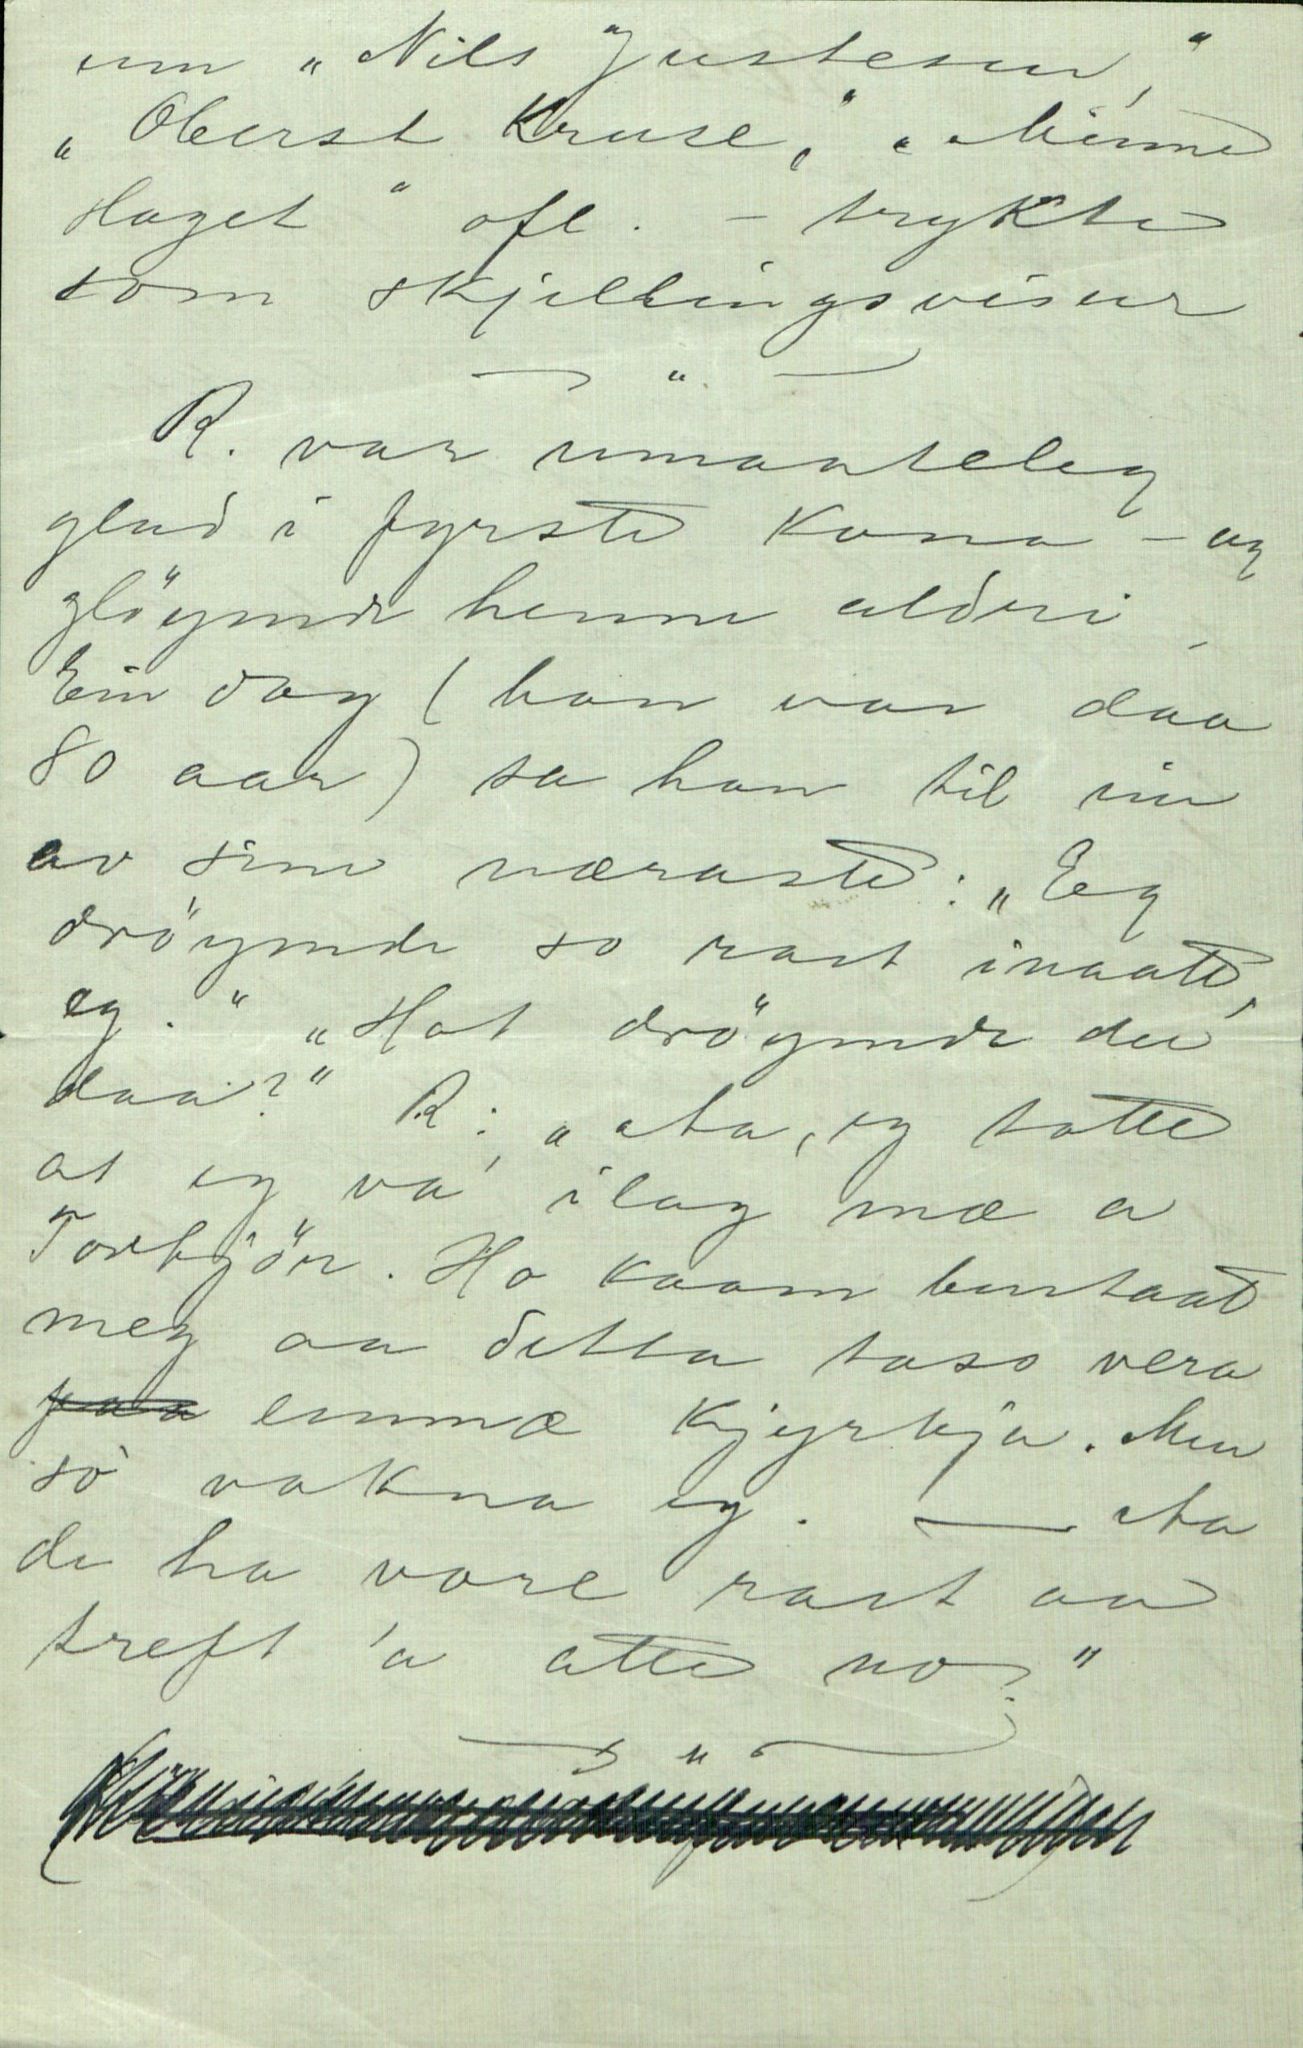 um „Nils Justesen,"
„Oberst Kruse," „Minne
Haget" ofl. – trykte
som skjillingsvisur
R. var umaateleg
glad i fyrste kona – og
gløymde henne aldri.
Ein dag (han var daa
80 aar) sa han til ein
av sine næraste: „Eg
drøymde so rart inaatt,
eg." „Hot drøymde du
daa?" R: „Aa, eg totte
at eg va' ilag mæ a
Torbjør. Ho kaam burtaat
meg aa detta taso vera
paa emmæ Kjyrkja. Men
so vakna eg. — Aa
de ha vore rart aa
treft 'a atte no."